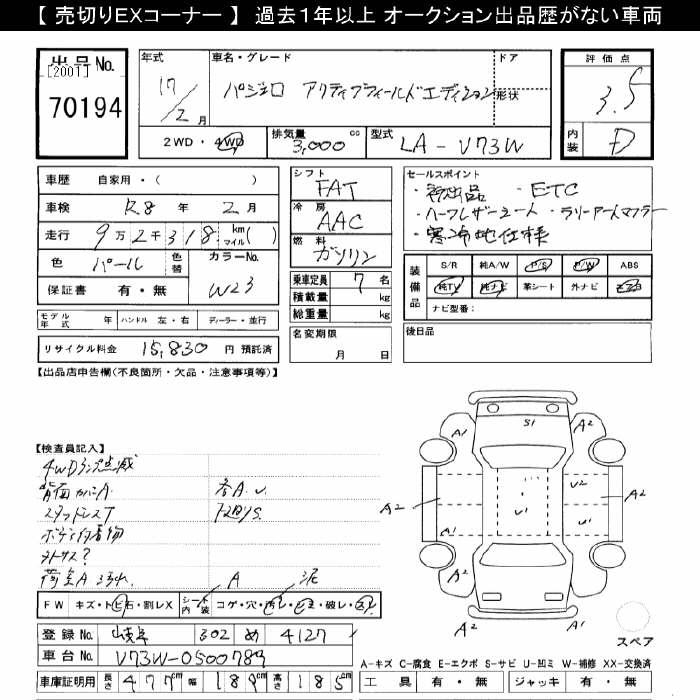 【 売切りEXコーナー 】 過去１年以上 オークション出品歴がない車両
出品 No.
[2001]
70194
年式
17/2 月
車名・グレード
パジェロ アクティブフィールドエディション
ドア
形状
2WD・4WD
排気量 3,000 cc
型式 LA-V73W
評価点
3.5
内装
D
車歴 自家用・( )
車検 R8 年 2 月
走行 9万2千318 km マイル ( )
色 パール
色替
カラーNo.
W23
保証書 有・無
モデル年式 年
ハンドル 左・右
ディーラー・並行
リサイクル料金 15,830 円 預託済
シフト
FAT
冷房
AAC
燃料
ガソリン
乗車定員 7 名
積載量 kg
総重量 kg
名変期限
月 日
セールスポイント
・初出品 ・ETC
・ハーフレザーシート ・ラリーアートマフラー
・寒冷地仕様
装備品
S/R 純A/W P/S P/W ABS
純TV 純ナビ 革シート 外ナビ エアB
ナビ型番:
後日品
【出品店申告欄(不良箇所・欠品・注意事項等)】
【検査員記入】
4WDランプ点滅
背面カバーA
各A.U.
スタッドレスT
ボディ付着物
荷室A 汚れ
A1
S1
A2
A2
U2
A2
U1
A1
U1
A2
A2
スペア
FW キズ・トビ石・割レX
シート内装 コゲ・穴・汚レ・ビス・破レ・スレ
A 泥
登録 No. 岐阜 302 め 4127
車台 No. V73W-0500789
車庫証明用 長さ 477 cm 幅 189 cm 高さ 185 cm
A-キズ C-腐食 E-エクボ S-サビ U-凹ミ W-補修 XX-交換済
工具 有・無 ジャッキ 有・無